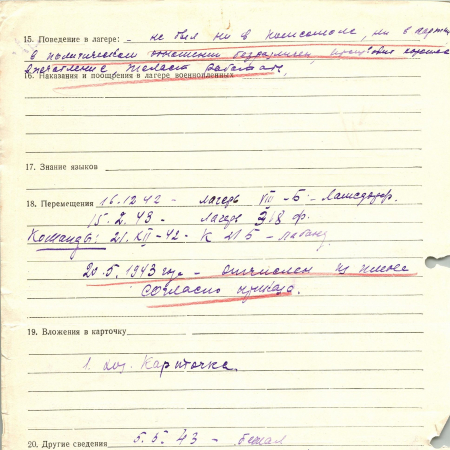 15. Поведение в лагере: - не был ни в комсомоле, ни в партии
в политическом отношении безразличен, производит хорошее
впечатление. Желает работать,
16. Наказания и поощрения в лагере военнопленных
17. Знание языков
18. Перемещения 16.12.42 - лагерь VIII-Б - Ламсдорф.
15.2.43 - лагерь 318 ф.
Команды: 21.XII-42 - К 215 -
20.5.1943 года - отчислен из плена
согласно приказа.
19. Вложения в карточку
1. Карточка.
20. Другие сведения 5.5.43 - бежал